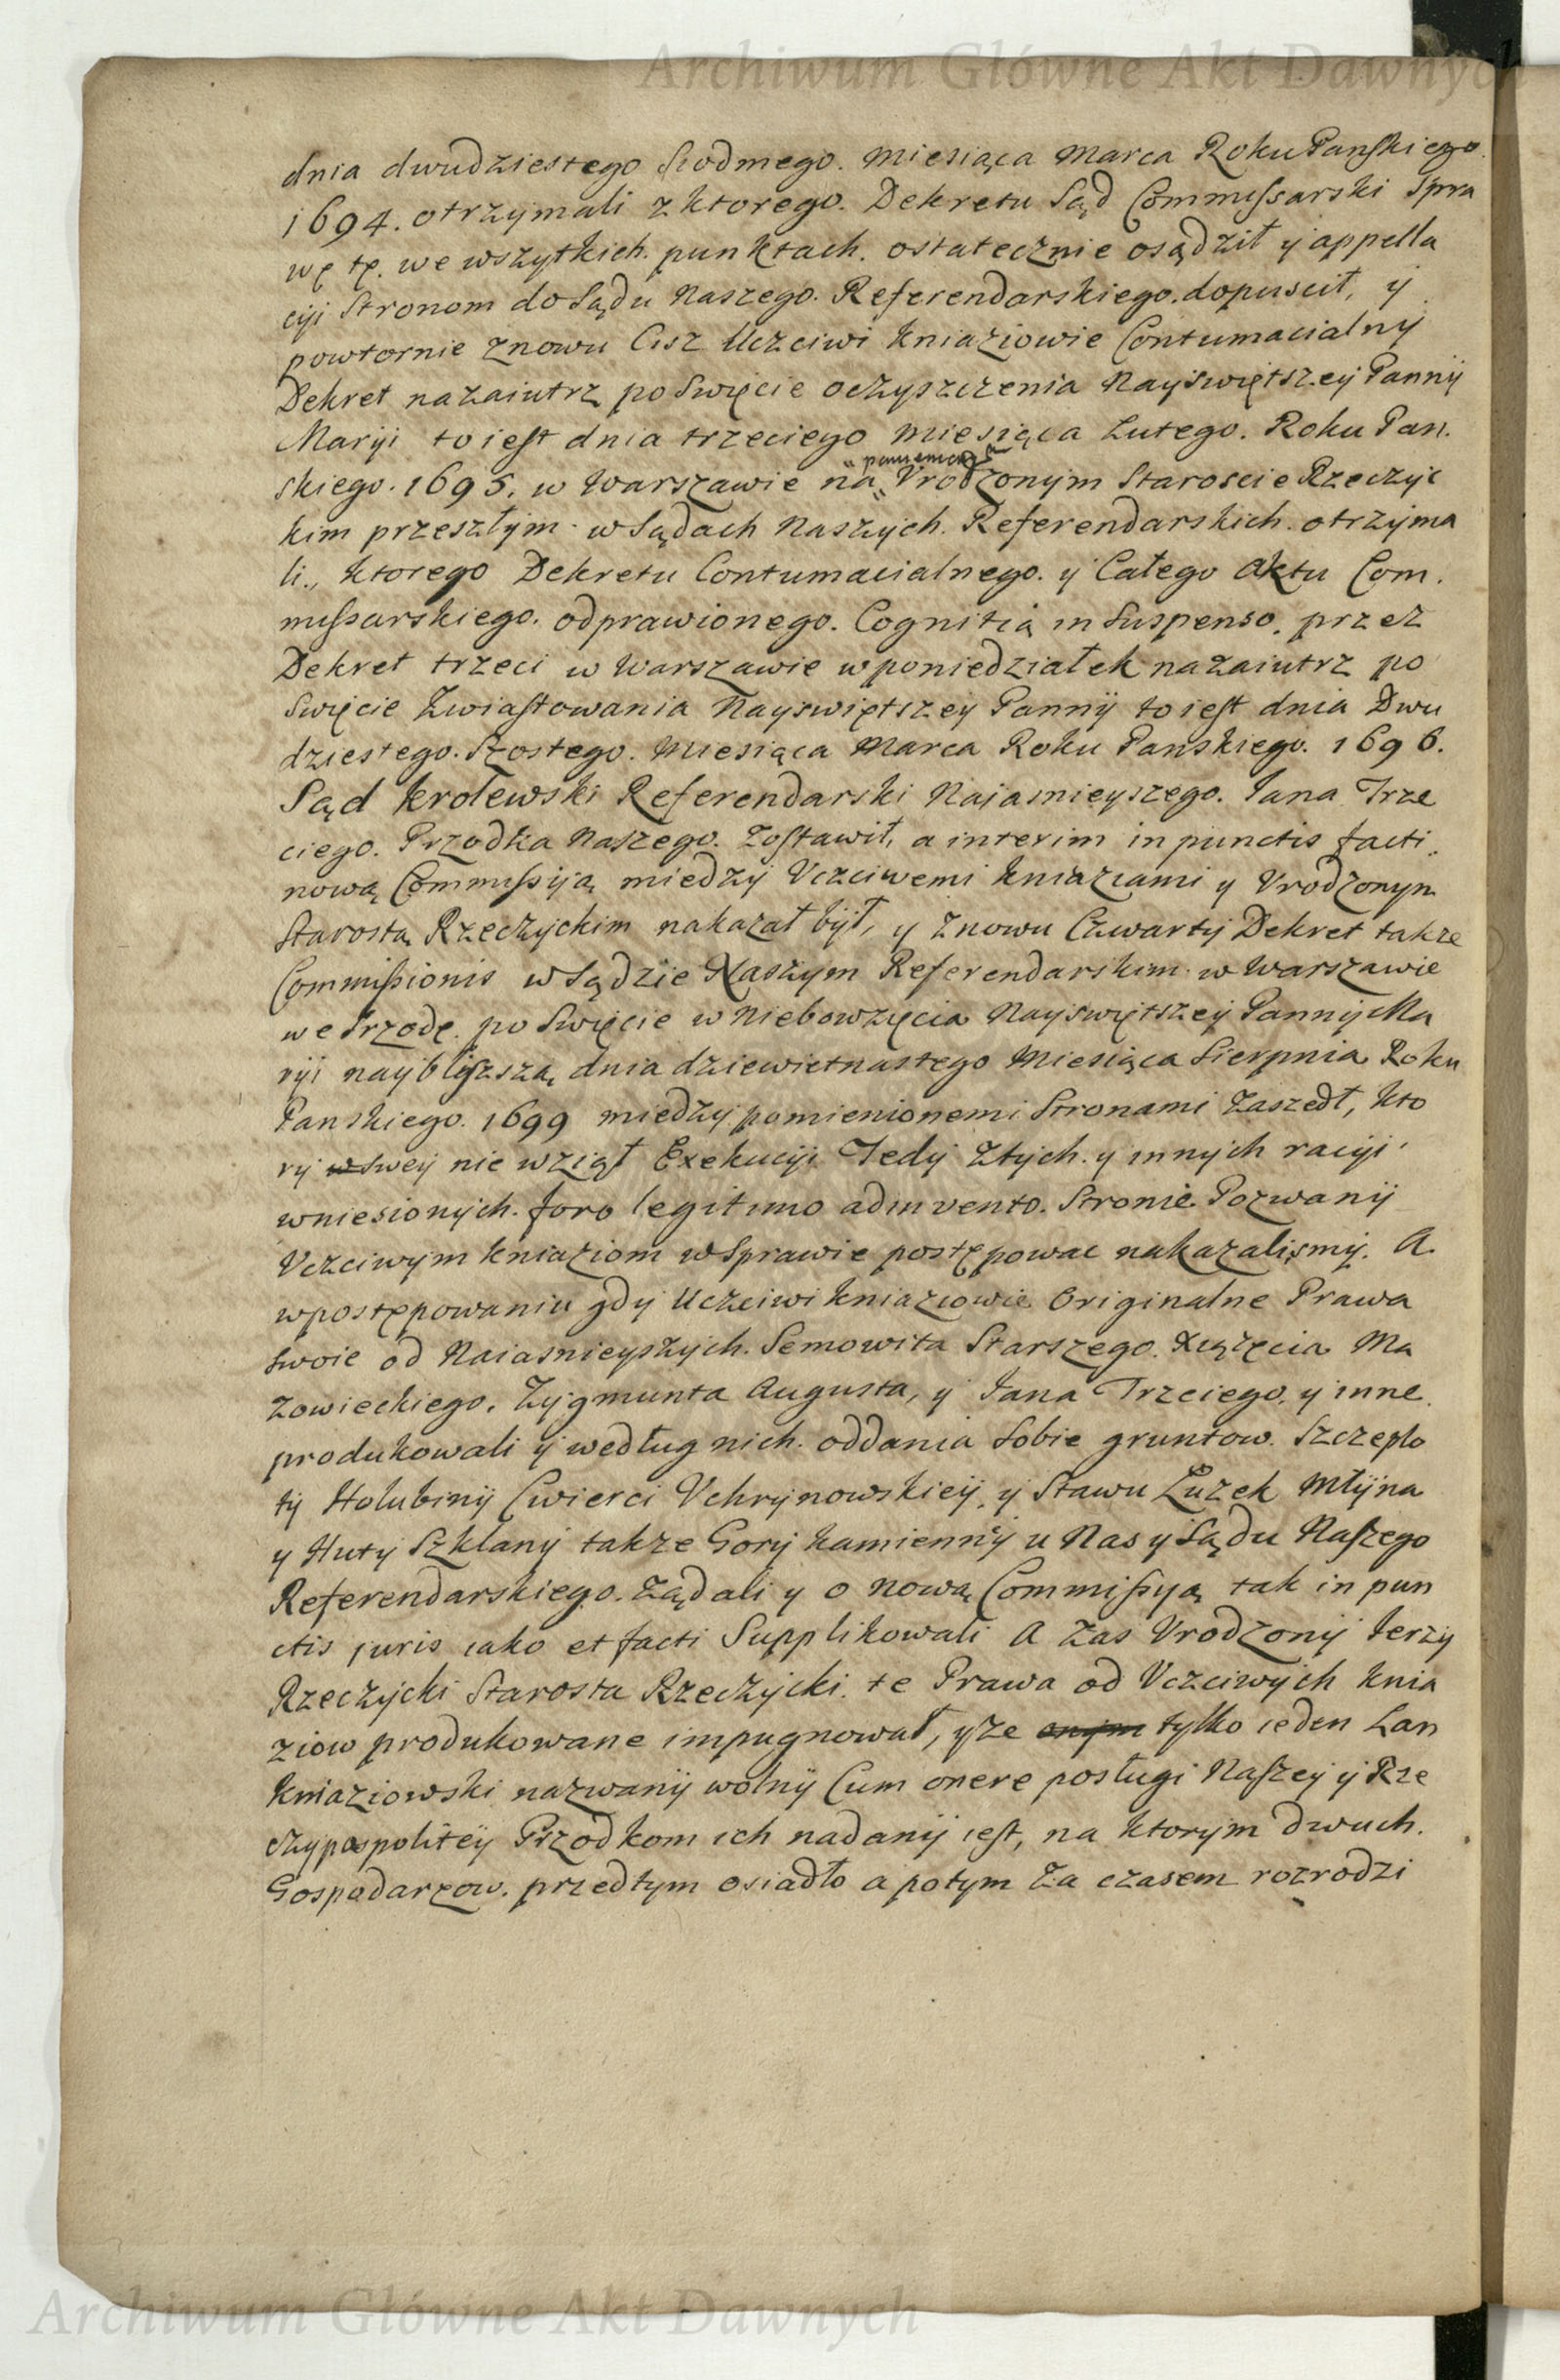 Archiwum Główne Akt Dawnych
dnia dwudziestego siodmego. Miesiąca Marca Roku Panskiego
1694. otrzymali z ktorego. Dekretu Sąd Commissarski Spra
wę tę. we wszytkich. punktach. ostatecznie osądził y appella
cyi Stronom do Sądu Naszego. Referendarskiego. dopuscił, y
powtornie znowu Cisz Uczciwi Kniaziowie Contumacialny
Dekret nazaiutrz po Swięcie oczyszczenia Nayswiętszey Panny
Maryi to iest dnia trzeciego Miesiąca Lutego. Roku Pan.
skiego. 1695. w Warszawie na Vrodzonym Staroscie Rzeczyc
kim przeszłym w Sądach Naszych. Referendarskich. otrzyma
li., ktorego Dekretu Contumacialnego. y Całego Aktu Com.
missarskiego. odprawionego. Cognitią in Suspenso. przez
Dekret trzeci w Warszawie w poniedziałek nazaiutrz po
Swięcie Zwiastowania Nayswiętszey Panny to iest dnia Dwu
dziestego. Szostego. Miesiąca Marca Roku Panskiego. 1696.
Sąd Krolewski Referendarski Naiasnieyszego. Jana Trze
ciego. Przodka Naszego. Zostawił, a interim in punctis facti.
nową Commissyią między Vczciwemi Kniaziami y Vrodzonym
Starostą Rzeczyckim nakazał był, y znowu Czwarty Dekret także
Commissionis w Sądzie Naszym Referendarskim w Warszawie
we Srzodę. po Swięcie w Niebowzięcia Nayswiętszey Panny Ma
ryi naybliszszą dnia dziewietnastego Miesiąca Sierpnia Roku
Panskiego. 1699 między pomienionemi Stronami Zaszedł, kto
ry w swey nie wziął Exekucyi Tedy Ztych. y innych racyi
wniesionych. foro legitimo adinvento. Stronie Pozwany
Vczciwym Kniaziom w Sprawie postępowac nakazalismy. A.
w postępowaniu gdy Uczciwi Kniaziowie Originalne Prawa
Swoie od Naiasnieyszych. Semowita Starszego. Xiążęcia Ma
zowieckiego. Zygmunta Augusta, y Jana Trzeciego. y inne.
produkowali y według nich. oddania Sobie gruntow. Szczepło
ty Holubiny Cwierci Vchrynowskiey, y Stawu Luzek Młyna
y Huty Szklany także Gory kamienny u Nas y Sądu Naszego
Referendarskiego. Żądali y o nową Commissyą tak in pun
ctis juris iako et facti Supplikowali A Zas Vrodzony Jerzy
Rzeczycki Starosta Rzeczycki. te Prawa od Vczciwych Knia
ziow produkowane impugnował, yże tylko ieden Łan
Kniaziowski nazwany wolny Cum onere posługi Naszey y Rze
czypospolitey Przodkom ich nadany iest, na ktorym dwuch.
Gospodarzow. przedtym osiadło a potym Za czasem rozrodzi
Archiwum Główne Akt Dawnych